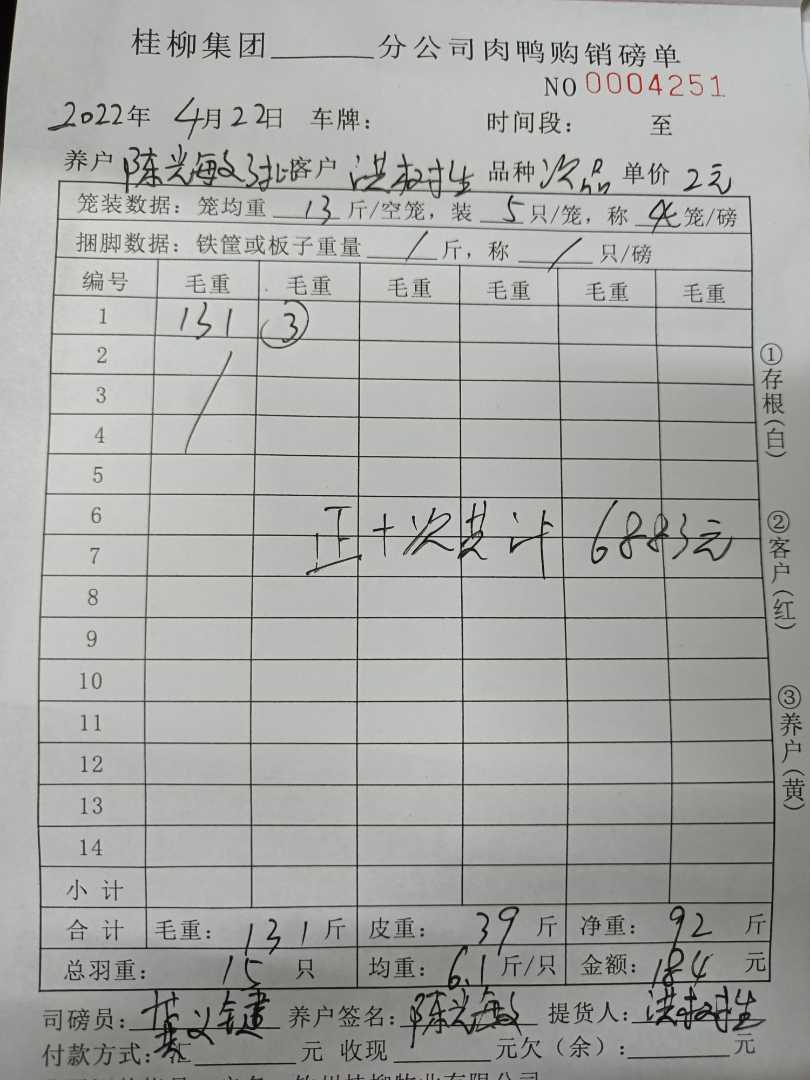 桂柳集团______分公司肉鸭购销磅单
NO 0004251
2022年 4月22日 车牌: 时间段: 至
养户 陈光敏 客户 洪树生 品种 次品 单价 2元
笼装数据: 笼均重 13 斤/空笼, 装 5 只/笼, 称 笼/磅
捆脚数据: 铁筐或板子重量 / 斤, 称 / 只/磅
编号 毛重 毛重 毛重 毛重 毛重 毛重
1 131 ③
2
3
4
5
6
正十次共计 6883元
7
8
9
10
11
12
13
14
小计
合计 毛重: 131 斤 皮重: 39 斤 净重: 92 斤
总羽重: 15 只 均重: 6.1 斤/只 金额: 184 元
司磅员: 养户签名: 陈光敏 提货人: 洪树生
付款方式: 汇______元 收现______元欠(余):______元
①存根(白)
②客户(红)
③养户(黄)